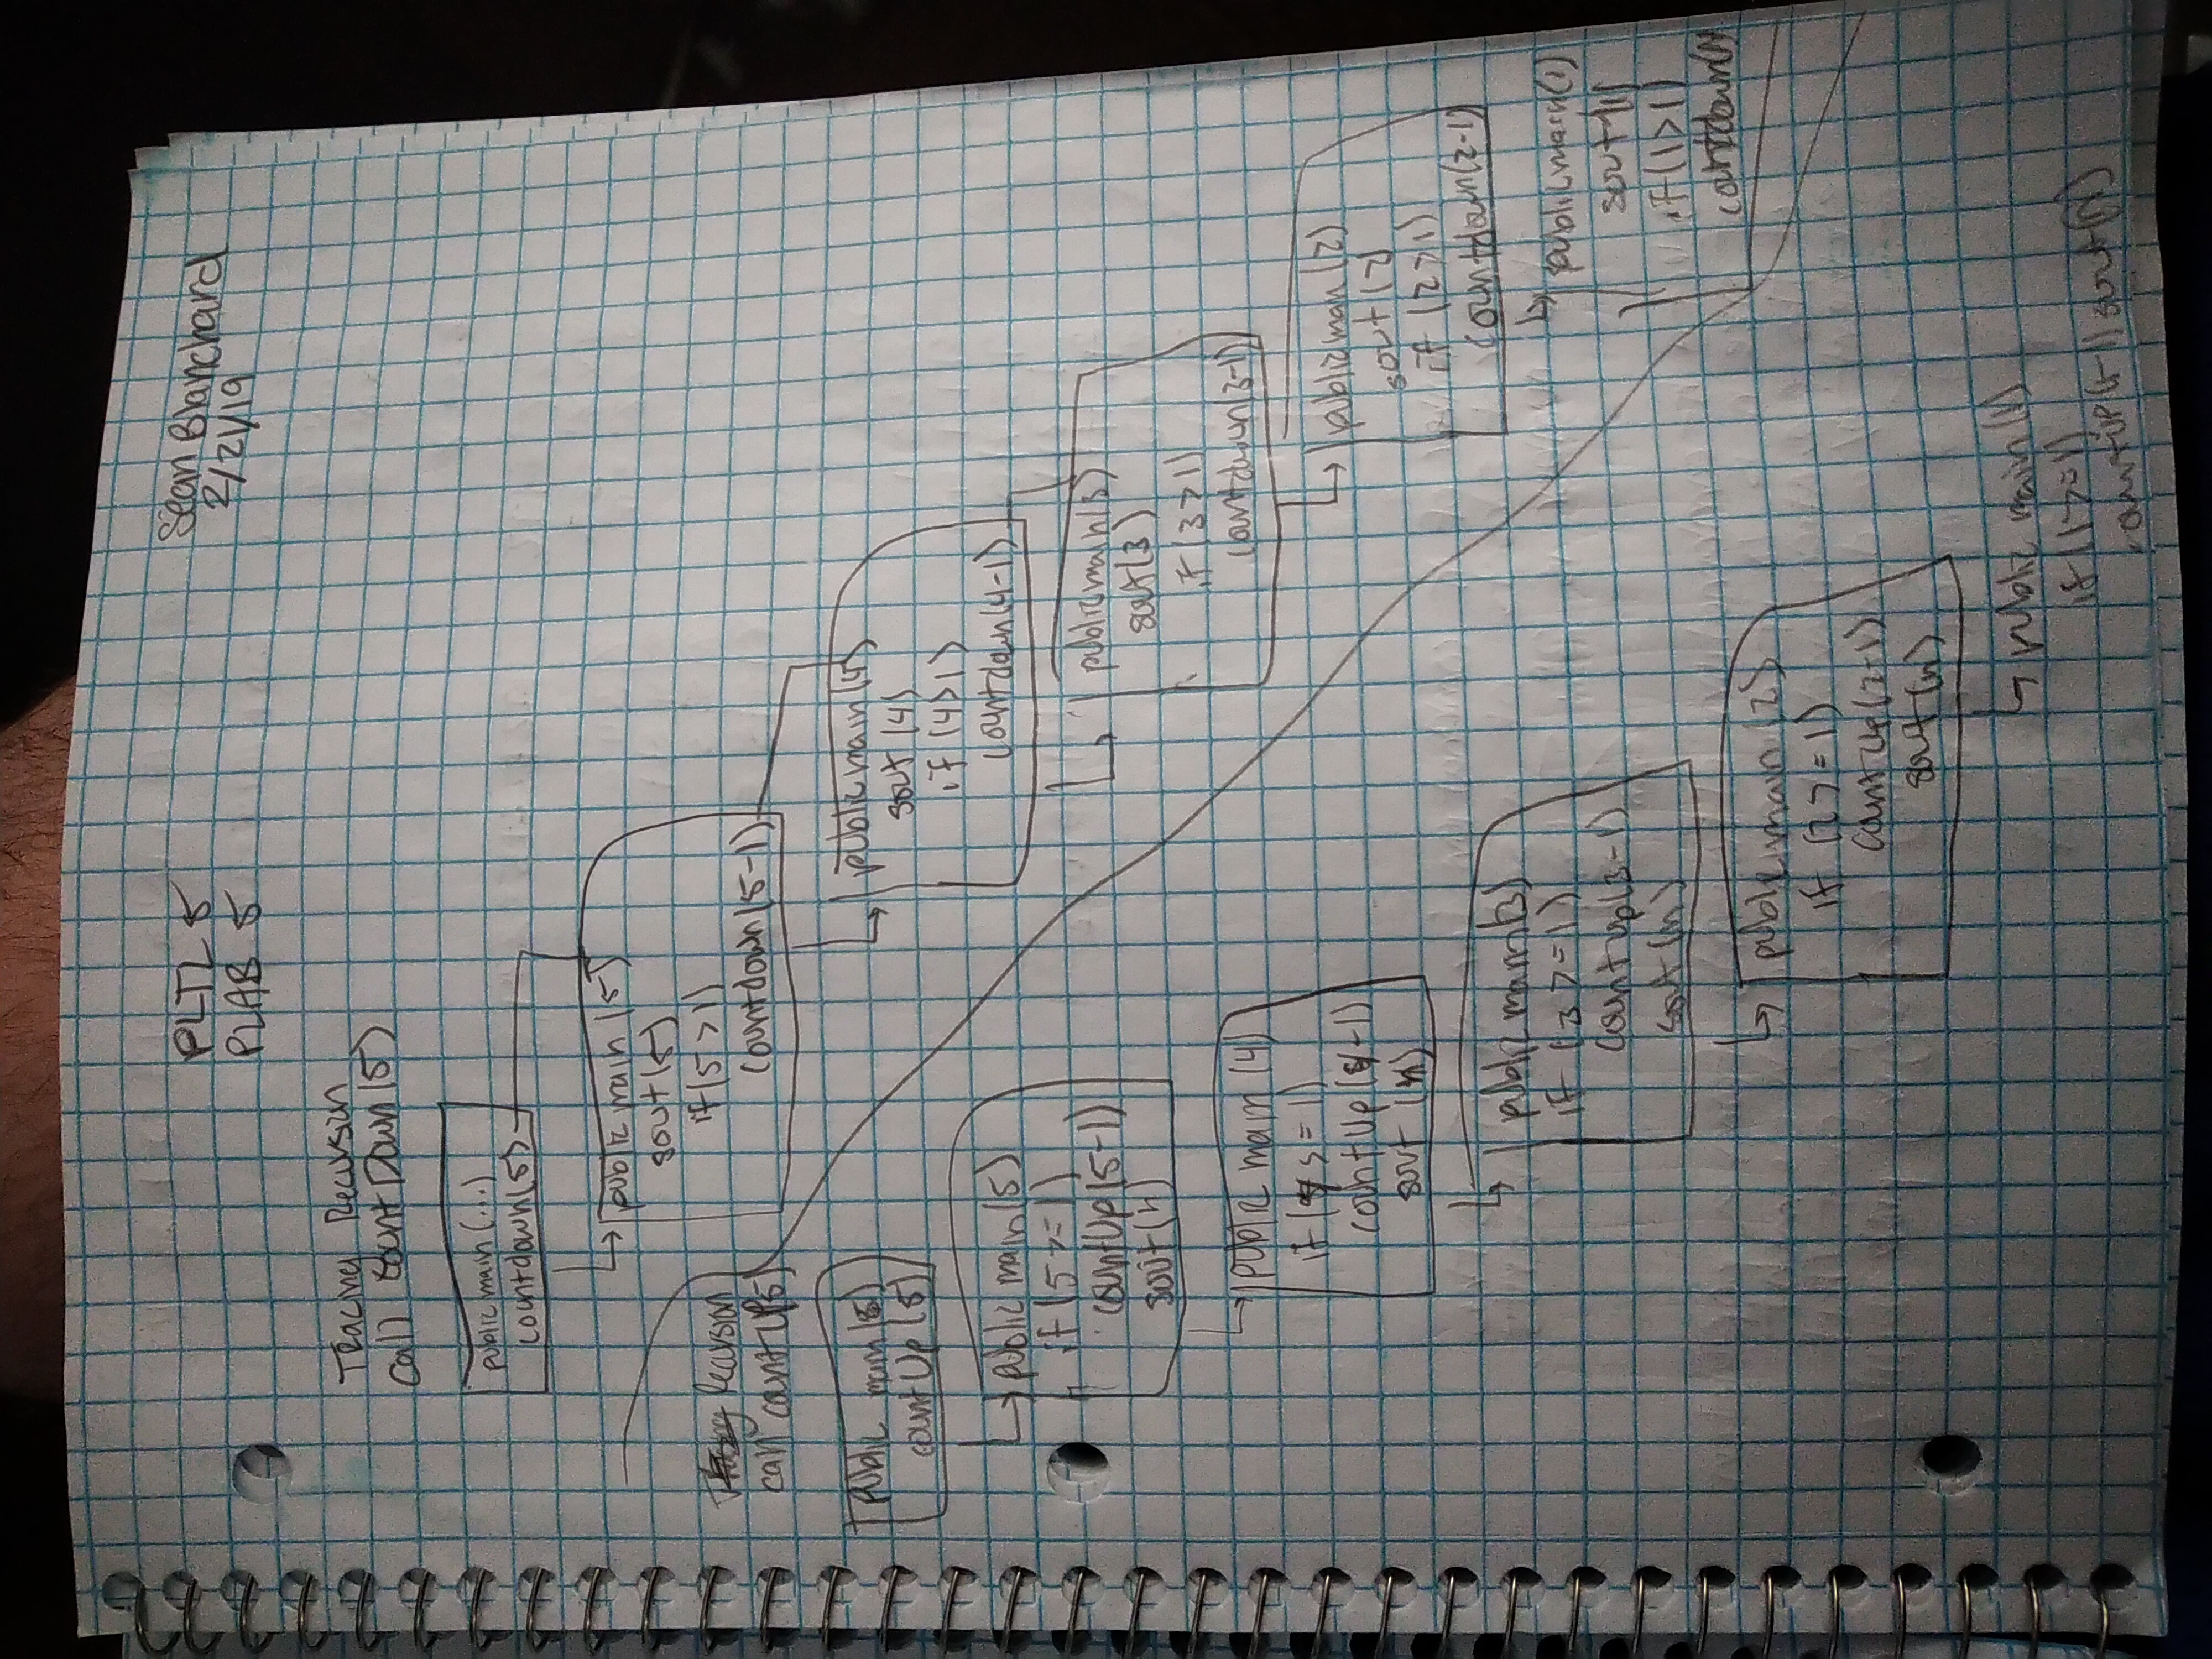 PLTL 5
PLAB 5
Sean Blanchard
2/21/19
Tracing Recursion
Call countDown(5)
public main (...)
countdown(5)
public main (5)
sout(5)
if(5>1)
countdown(5-1)
public main(4)
sout (4)
if (4>1)
countdown(4-1)
public main(3)
sout(3)
if(3>1)
countdown(3-1)
public main (2)
sout (2)
if (2>1)
countdown(2-1)
public main(1)
sout(1)
if(1>1)
countdown
Recursion
call countUp5)
public main (5)
countUp(5)
public main(5)
if (5>=1)
countUp(5-1)
sout(n)
public main (4)
if (4>=1)
countUp(4-1)
sout (n)
public main(3)
if (3>=1)
countUp(3-1)
sout(n)
public main (2)
if (2>=1)
countUp(2-1)
sout(n)
public main(1)
if (1>=1)
countUp(1-1) sout(n)